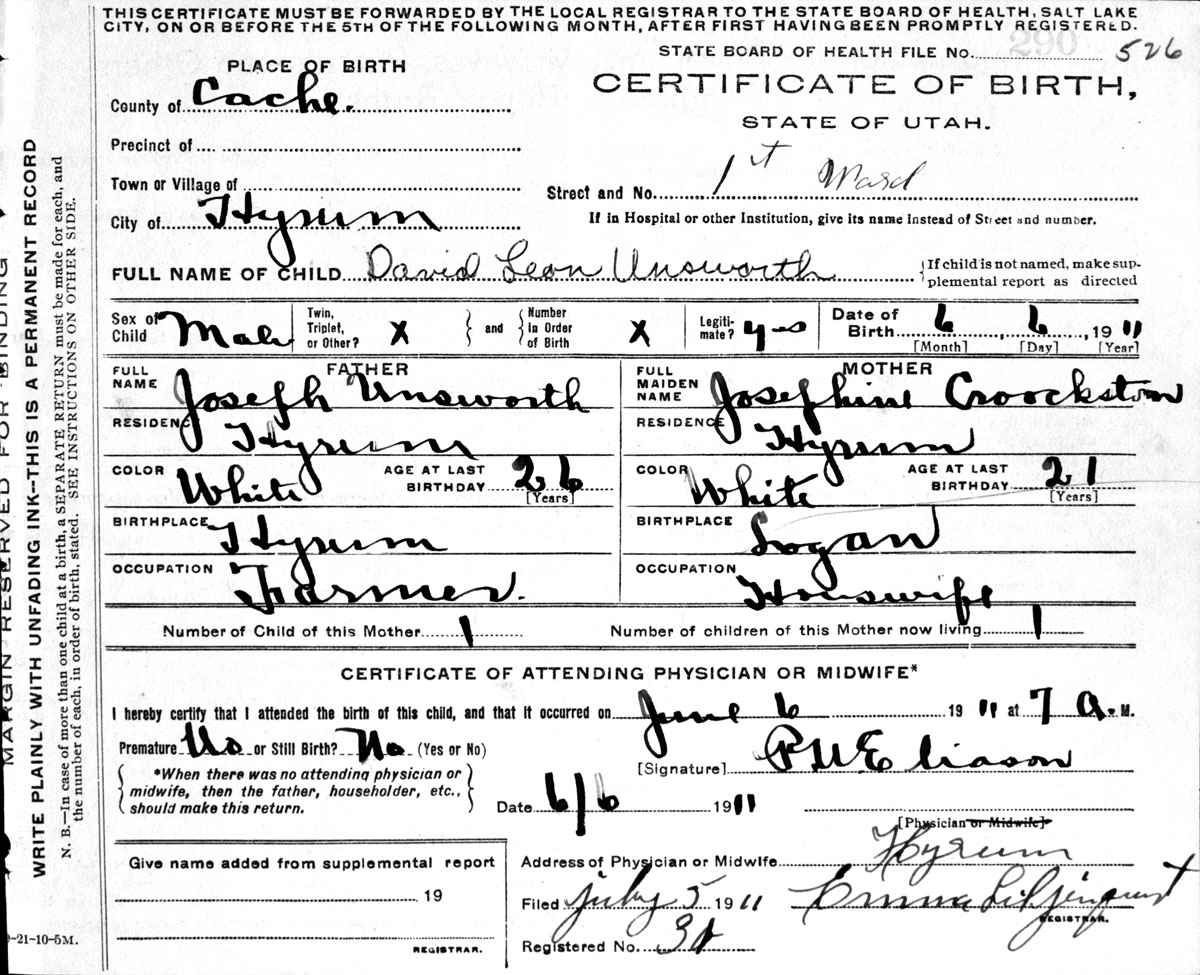 THIS CERTIFICATE MUST BE FORWARDED BY THE LOCAL REGISTRAR TO THE STATE BOARD OF HEALTH, SALT LAKE
CITY, ON OR BEFORE THE 5TH OF THE FOLLOWING MONTH, AFTER FIRST HAVING BEEN PROMPTLY REGISTERED.
STATE BOARD OF HEALTH FILE NO. 290 526
PLACE OF BIRTH
CERTIFICATE OF BIRTH,
County of Cache.
STATE OF UTAH.
Precinct of
Town or Village of
Street and No. 1st Ward
City of Hyrum
If in Hospital or other Institution, give its name instead of Street and number.
FULL NAME OF CHILD David Leon Unsworth
{If child is not named, make sup-
plemental report as directed
Sex of Child Male
Twin, Triplet, or Other? X
and
Number in Order of Birth X
Legiti-mate? yes
Date of Birth 6, 6, 1911
[Month] [Day] [Year]
FATHER
FULL NAME Joseph Unsworth
RESIDENCE Hyrum
COLOR White AGE AT LAST BIRTHDAY 26
[Years]
BIRTHPLACE Hyrum
OCCUPATION Farmer.
MOTHER
FULL MAIDEN NAME Josephine Croockston
RESIDENCE Hyrum
COLOR White AGE AT LAST BIRTHDAY 21
[Years]
BIRTHPLACE Logan
OCCUPATION Houswife
Number of Child of this Mother 1
Number of children of this Mother now living 1
CERTIFICATE OF ATTENDING PHYSICIAN OR MIDWIFE*
I hereby certify that I attended the birth of this child, and that it occurred on June 6 1911 at 7 a. M.
Premature No or Still Birth? No (Yes or No)
*When there was no attending physician or
midwife, then the father, householder, etc.,
should make this return.
[Signature] Eliason
Date 6/6 1911
[Physician or Midwife]
Address of Physician or Midwife Hyrum
Filed July 5 1911 Emma Liljenquist
REGISTRAR.
Registered No.
Give name added from supplemental report
19
REGISTRAR.
-21-10-5M.
MARGIN RESERVED FOR BINDING
WRITE PLAINLY WITH UNFADING INK—THIS IS A PERMANENT RECORD
N. B.—In case of more than one child at a birth, a SEPARATE RETURN must be made for each, and
the number of each, in order of birth, stated. SEE INSTRUCTIONS ON OTHER SIDE.